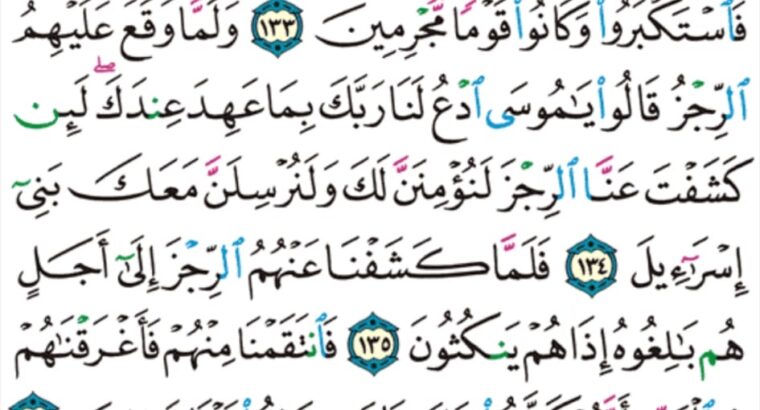 فَٱسْتَكْبَرُوا۟ وَكَانُوا۟ قَوْمًا مُّجْرِمِينَ ١٣٣ وَلَمَّا وَقَعَ عَلَيْهِمُ
ٱلرِّجْزُ قَالُوا۟ يَٰمُوسَى ٱدْعُ لَنَا رَبَّكَ بِمَا عَهِدَ عِندَكَ ۖ لَئِن
كَشَفْتَ عَنَّا ٱلرِّجْزَ لَنُؤْمِنَنَّ لَكَ وَلَنُرْسِلَنَّ مَعَكَ بَنِىٓ
إِسْرَٰٓءِيلَ ١٣٤ فَلَمَّا كَشَفْنَا عَنْهُمُ ٱلرِّجْزَ إِلَىٰٓ أَجَلٍ
هُم بَٰلِغُوهُ إِذَا هُمْ يَنكُثُونَ ١٣٥ فَٱنتَقَمْنَا مِنْهُمْ فَأَغْرَقْنَٰهُمْ